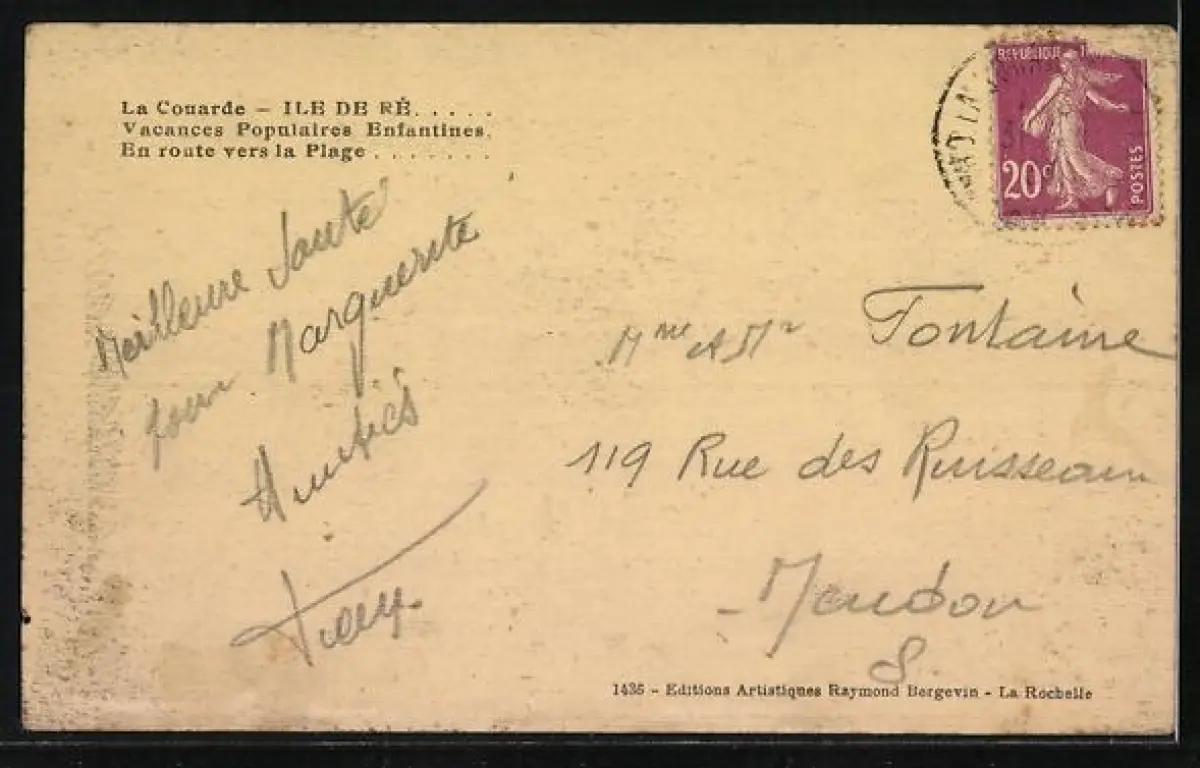 La Couarde – ILE DE RÉ. . . . .
Vacances Populaires Enfantines.
En route vers la Plage . . . . . . .
REPUBLIQUE
20c
POSTES
Meilleure Santé
pour Marguerite
Amitiés
Mme et Mr Fontaine
119 Rue des Ruisseaux
Meudon
S.
1436 - Editions Artistiques Raymond Bergevin - La Rochelle